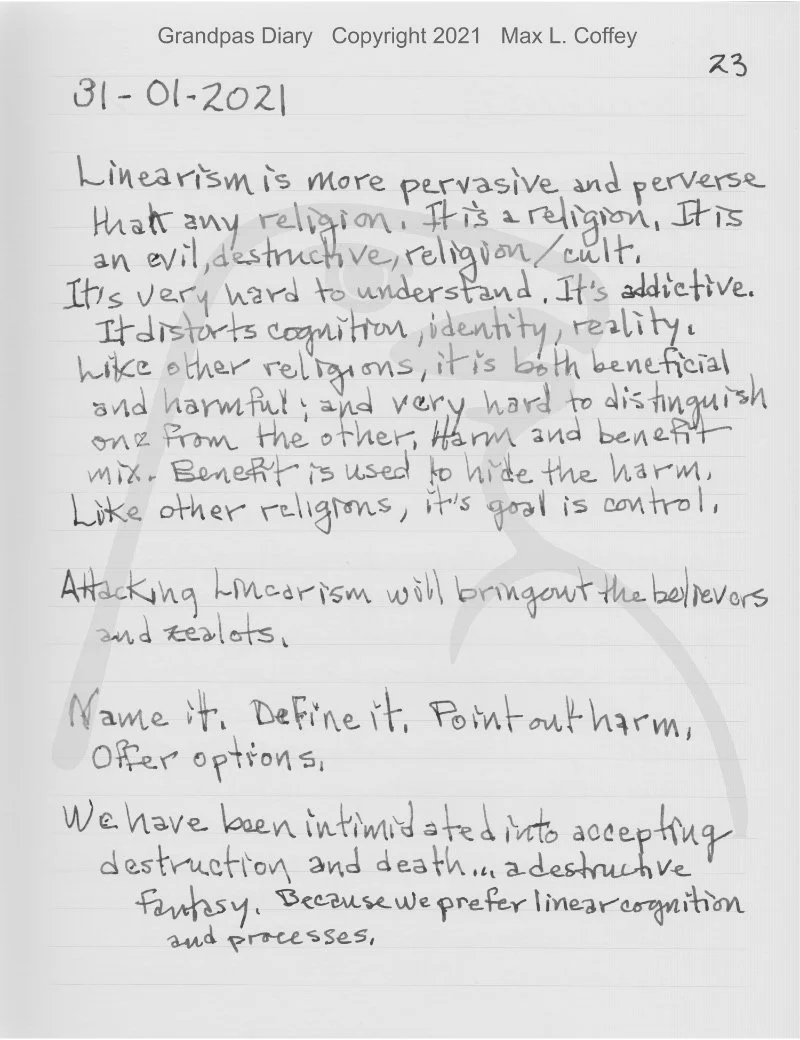 Grandpas Diary Copyright 2021 Max L. Coffey
23
31-01-2021
Linearism is more pervasive and perverse
than any religion. It is a religion. It is
an evil, destructive, religion/cult.
It's very hard to understand. It's addictive.
It distorts cognition, identity, reality.
Like other religions, it is both beneficial
and harmful; and very hard to distinguish
one from the other. Harm and benefit
mix. Benefit is used to hide the harm.
Like other religions, it's goal is control.
Attacking Linearism will bring out the believers
and zealots.
Name it. Define it. Point out harm.
Offer options.
We have been intimidated into accepting
destruction and death... a destructive
fantasy. Because we prefer linear cognition
and processes.